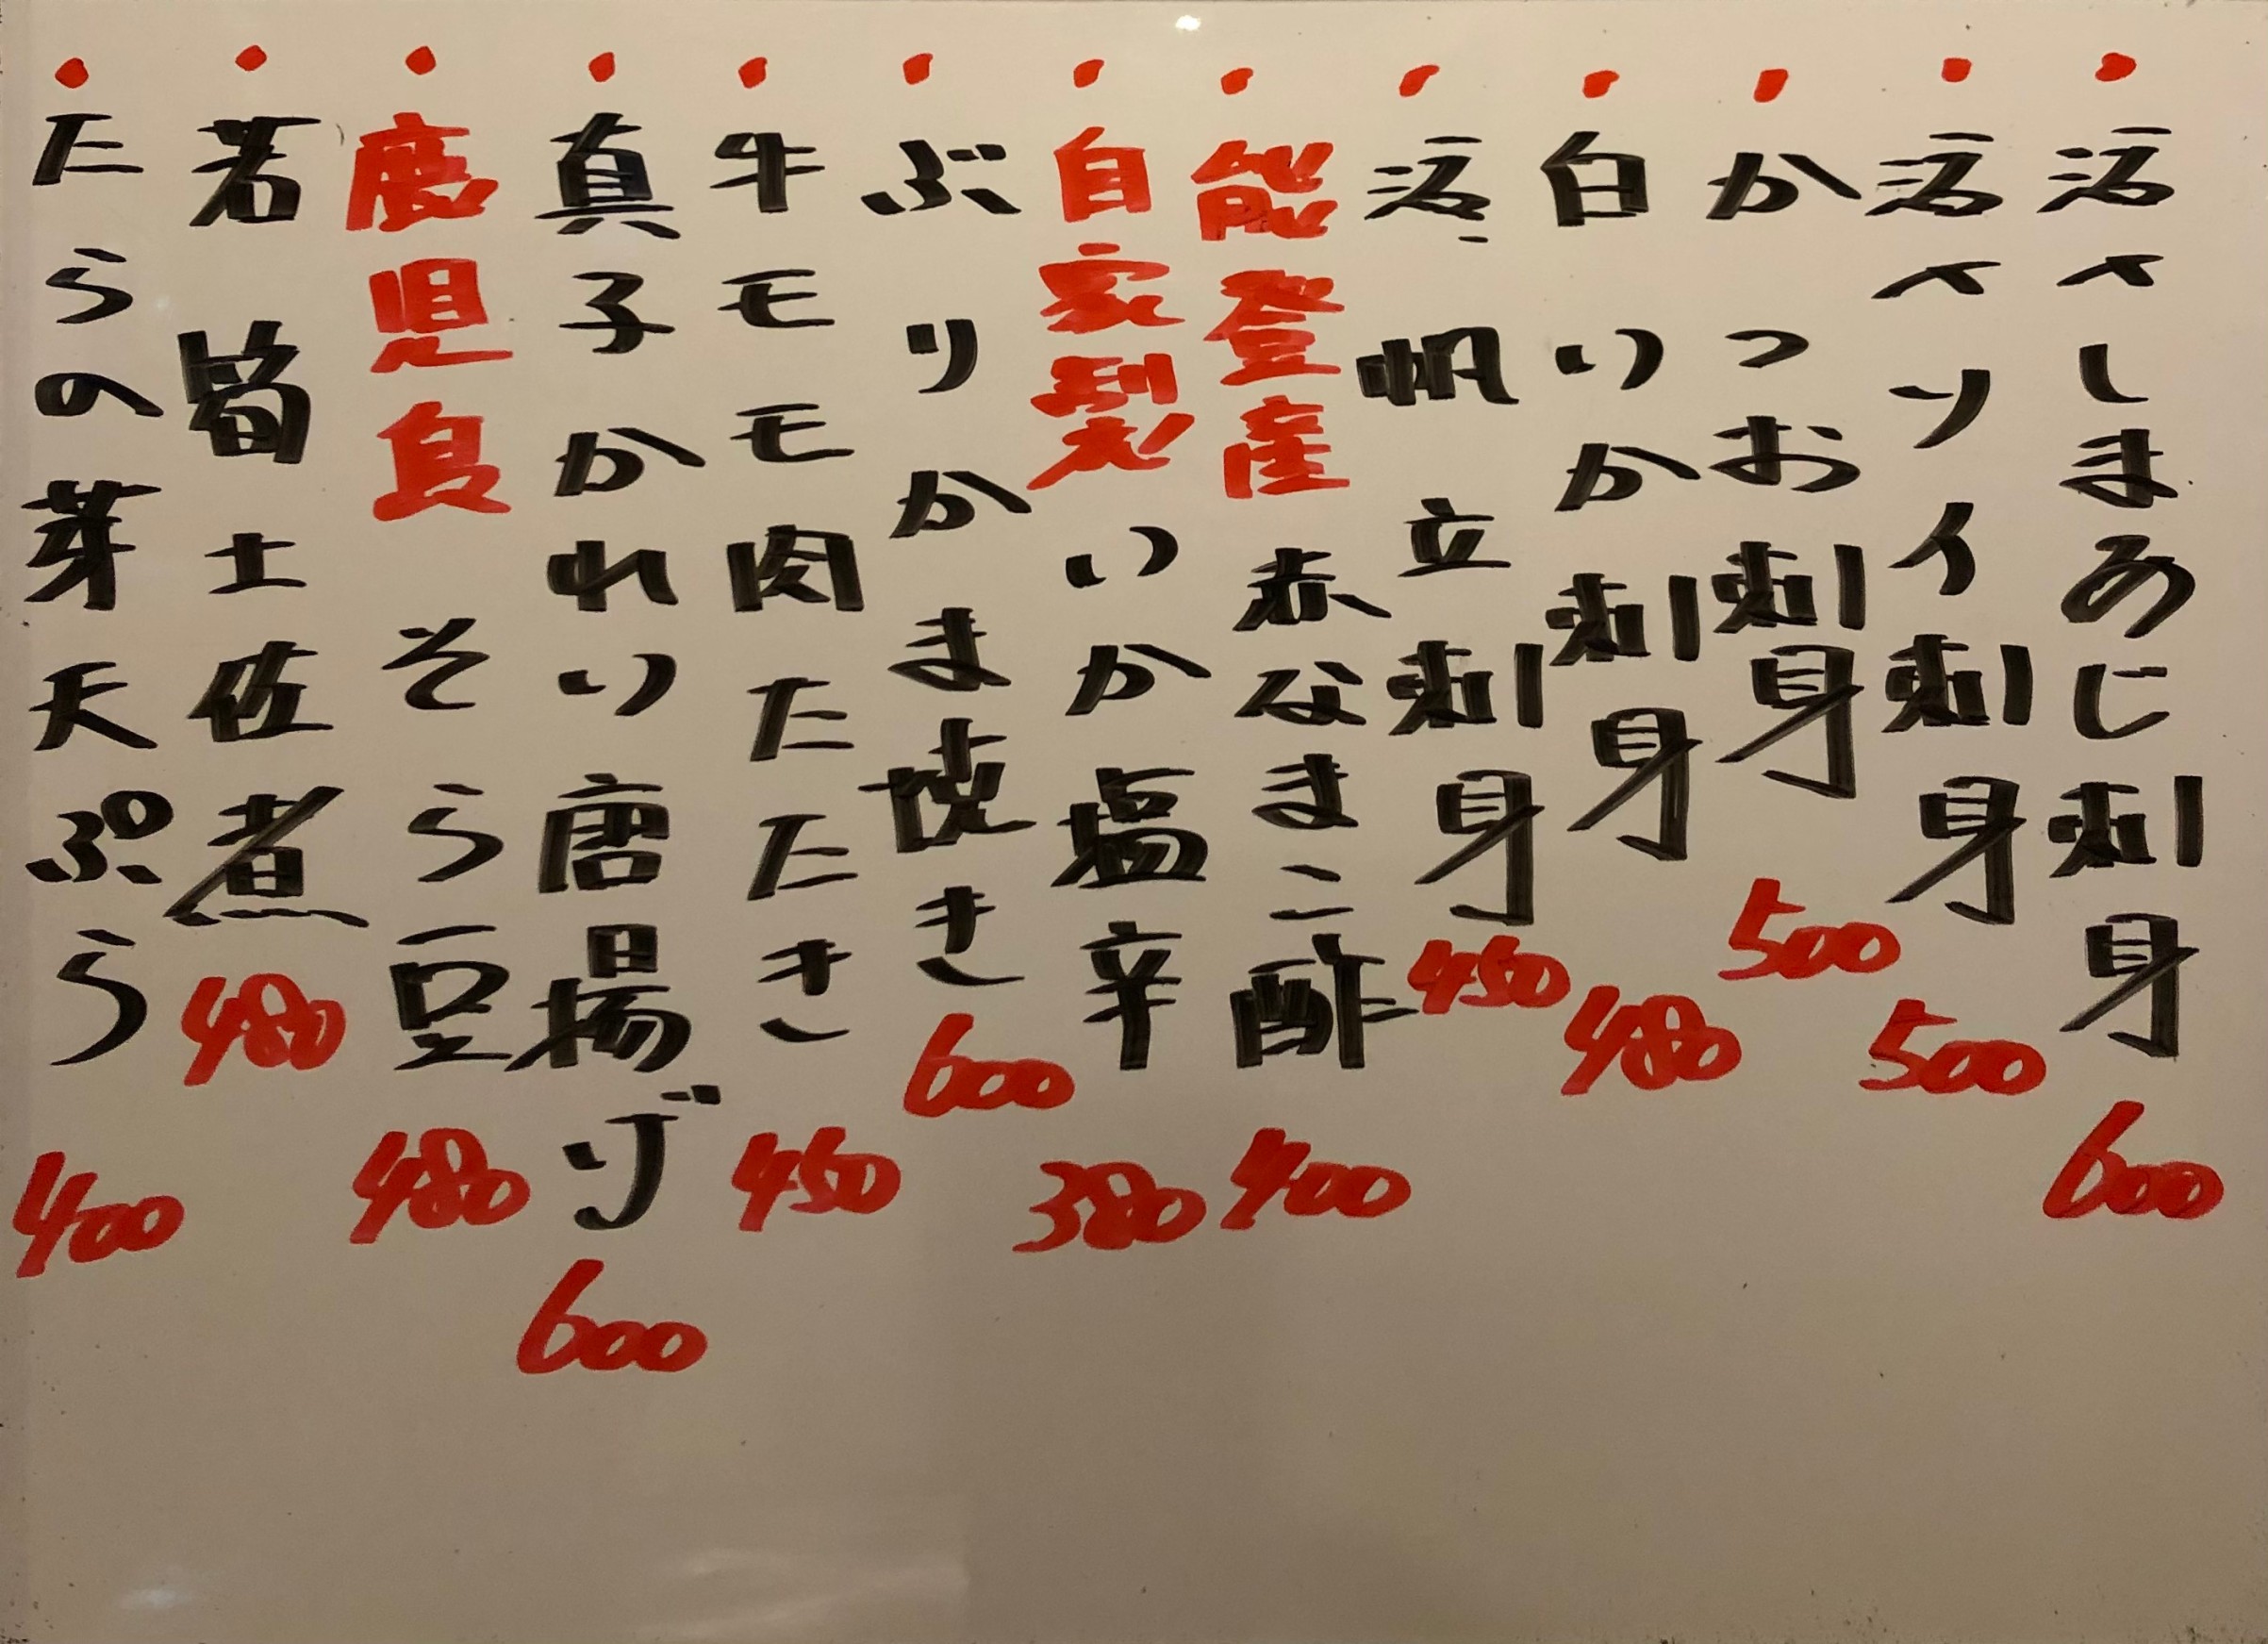 ・活〆しまあじ刺身 600
・活〆ソイ刺身 500
・かつお刺身 500
・白いか刺身 480
・活帆立刺身 450
・能登産赤なまこ酢 400
・自家製いか塩辛 380
・ぶりかま焼き 600
・牛モモ肉たたき 450
・真子かれい唐揚げ 600
・鹿児島そら豆 480
・若筍土佐煮 480
・たらの芽天ぷら 400